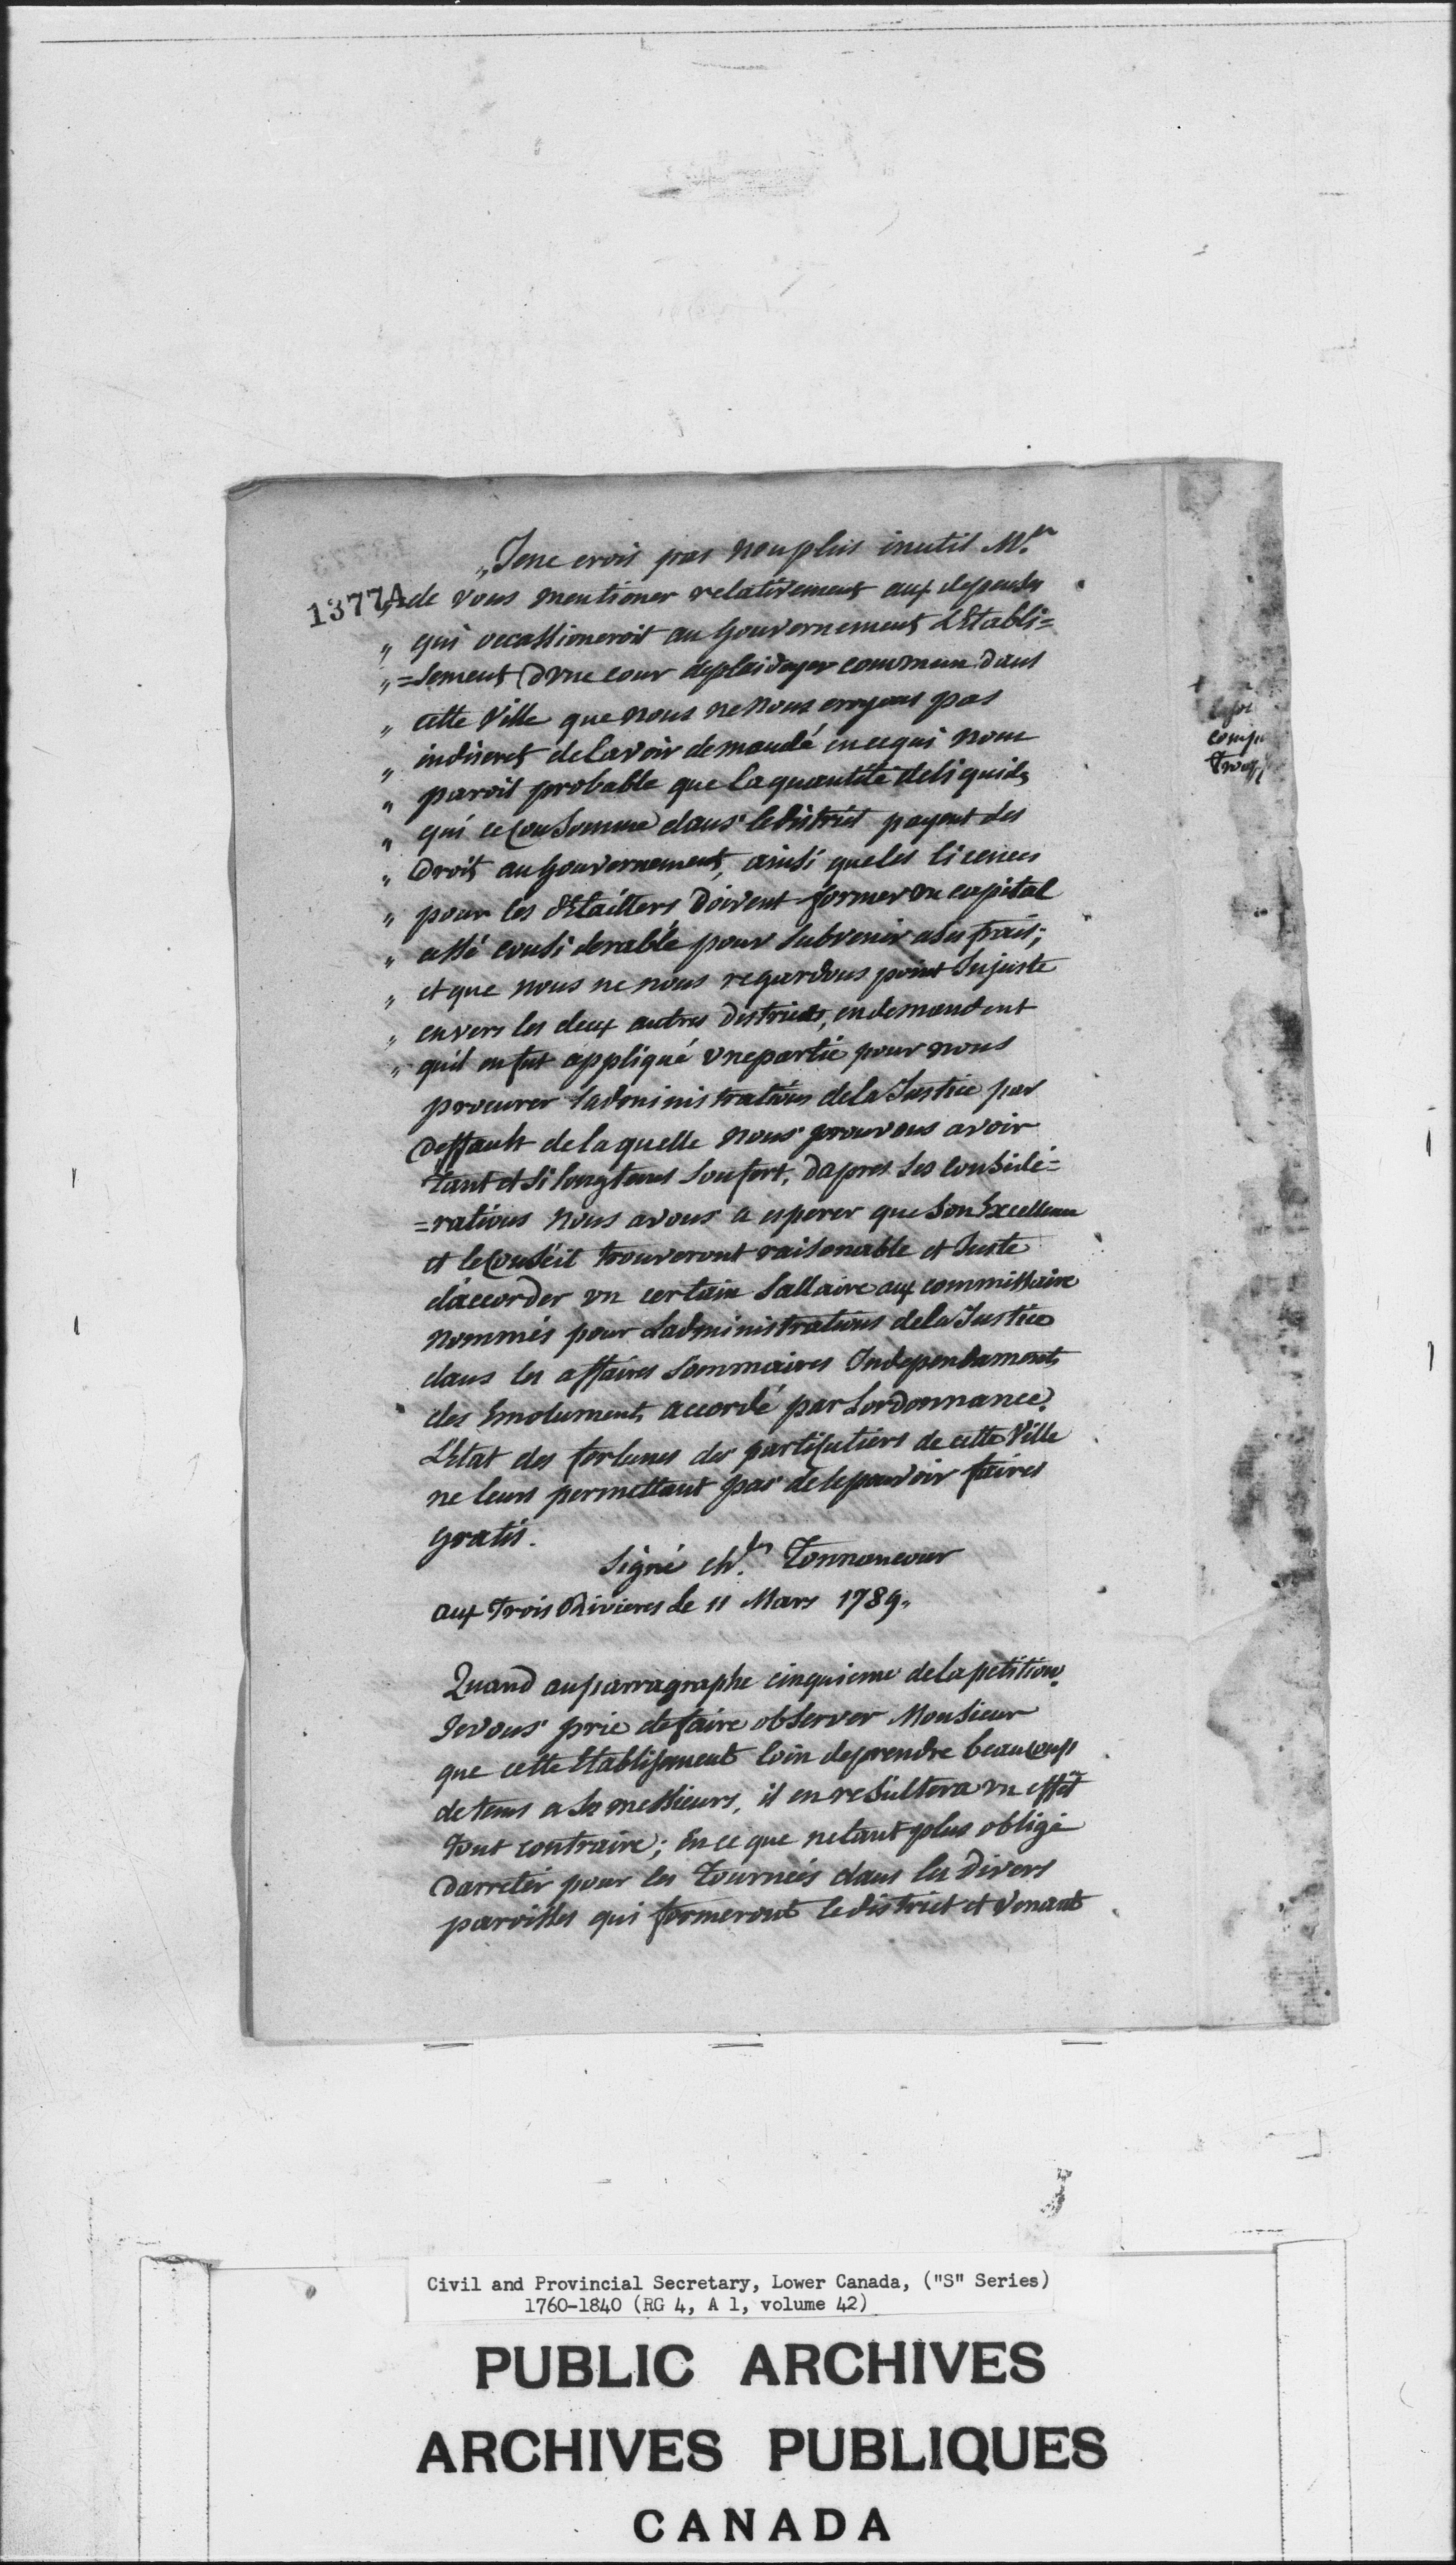 „Jene crois pas nonplus inutil Mr
13774
„ de vous mentioner relativement aux depenses
„ qui occassioneroit au Gouvernement L'Etabli=
„ =sement d'une cour deplaidoyer commun dans
„ cette Ville que nous ne nous croyons pas
„ indiscret delavoir demandé encequi nous
„ paroit probable que laquantité deliquids
„ qui ce Consomme dans ledistrict payent des
„ Droits au Gouvernement, ainsi queles licences
„ pour les détaillers Doivent former un capital
„ assé considerable pour Subvenir ases frais;
„ et que nous ne nous regardons point Injuste
„ envers les deux autres districts, endemandent
„ quil enfut appliqué unepartie pour nous
procurer Ladministrations dela Justice par
Deffault delaquelle nous prouvons avoir
Tant et si longtems Soufert, dapres Ses Considé=
=rations nous avons a esperer que Son Excellence
et leConseil trouveront raisonable et Juste
d'accorder un certain Sallaire aux commissaire
nommés pour Ladministrations dela Justice
dans les affaires Sommaires Independament
des Emoluments accordé par Lordonnance.
L'Etat des fortunes des particuliers de cette Ville
ne leurs permettant pas delepouvoir faires
Gratis.
Signé chles Tonnancour
aux Trois Rivieres le 11 Mars 1789„
Quand auparragraphe cinquieme delapetition.
Jevous prie defaire observer Monsieur
que cette Etablissment loin deprendre beaucoup
detems a Ses messieurs, il en resultera un effet
Tout contraire; En ce que netant plus obligé
Darreter pour les Tournées dans les Divers
paroisses qui formeront ledistrict et venant
Civil and Provincial Secretary, Lower Canada, ("S" Series)
1760-1840 (RG 4, A 1, volume 42)
PUBLIC ARCHIVES
ARCHIVES PUBLIQUES
CANADA